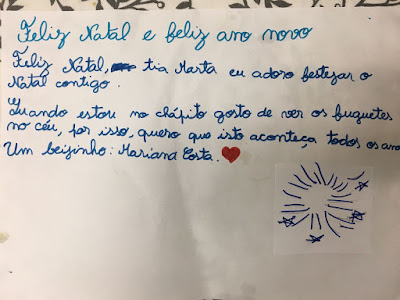 Feliz Natal e feliz ano novo
Feliz Natal, tia Marta eu adoro festejar o
Natal contigo.
Quando estou no chápito gosto de ver os fuguetes
no céu, por isso, quero que isto aconteça todos os ano
Um beizinho: Mariana Costa.